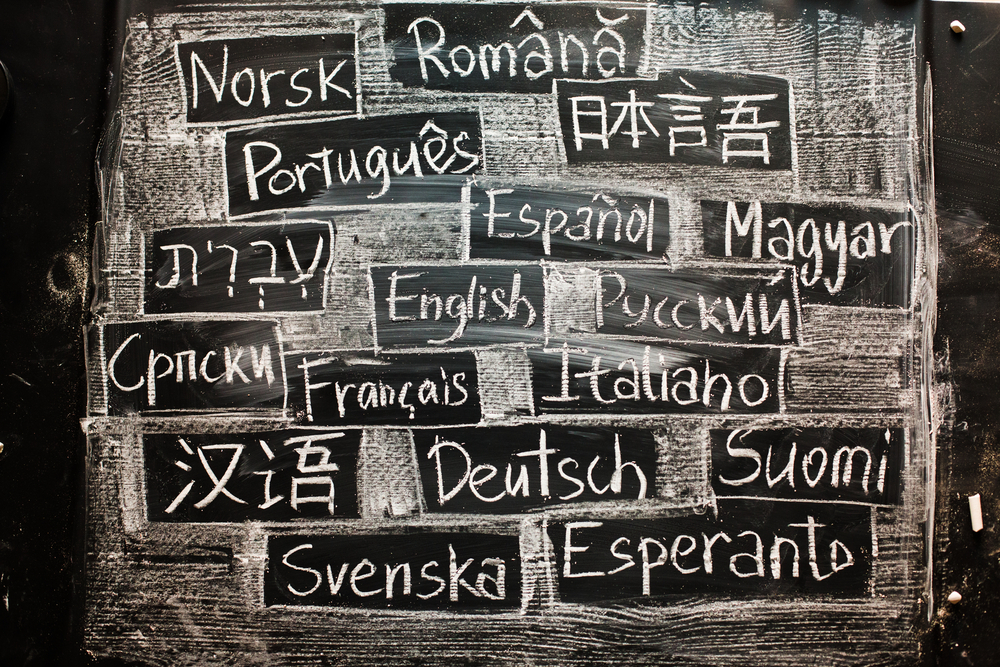 Norsk
Română
日本言吾
Português
Español
Magyar
עִבְרִית
English
Русский
Српски
Français
Italiano
汉语
Deutsch
Suomi
Svenska
Esperanto